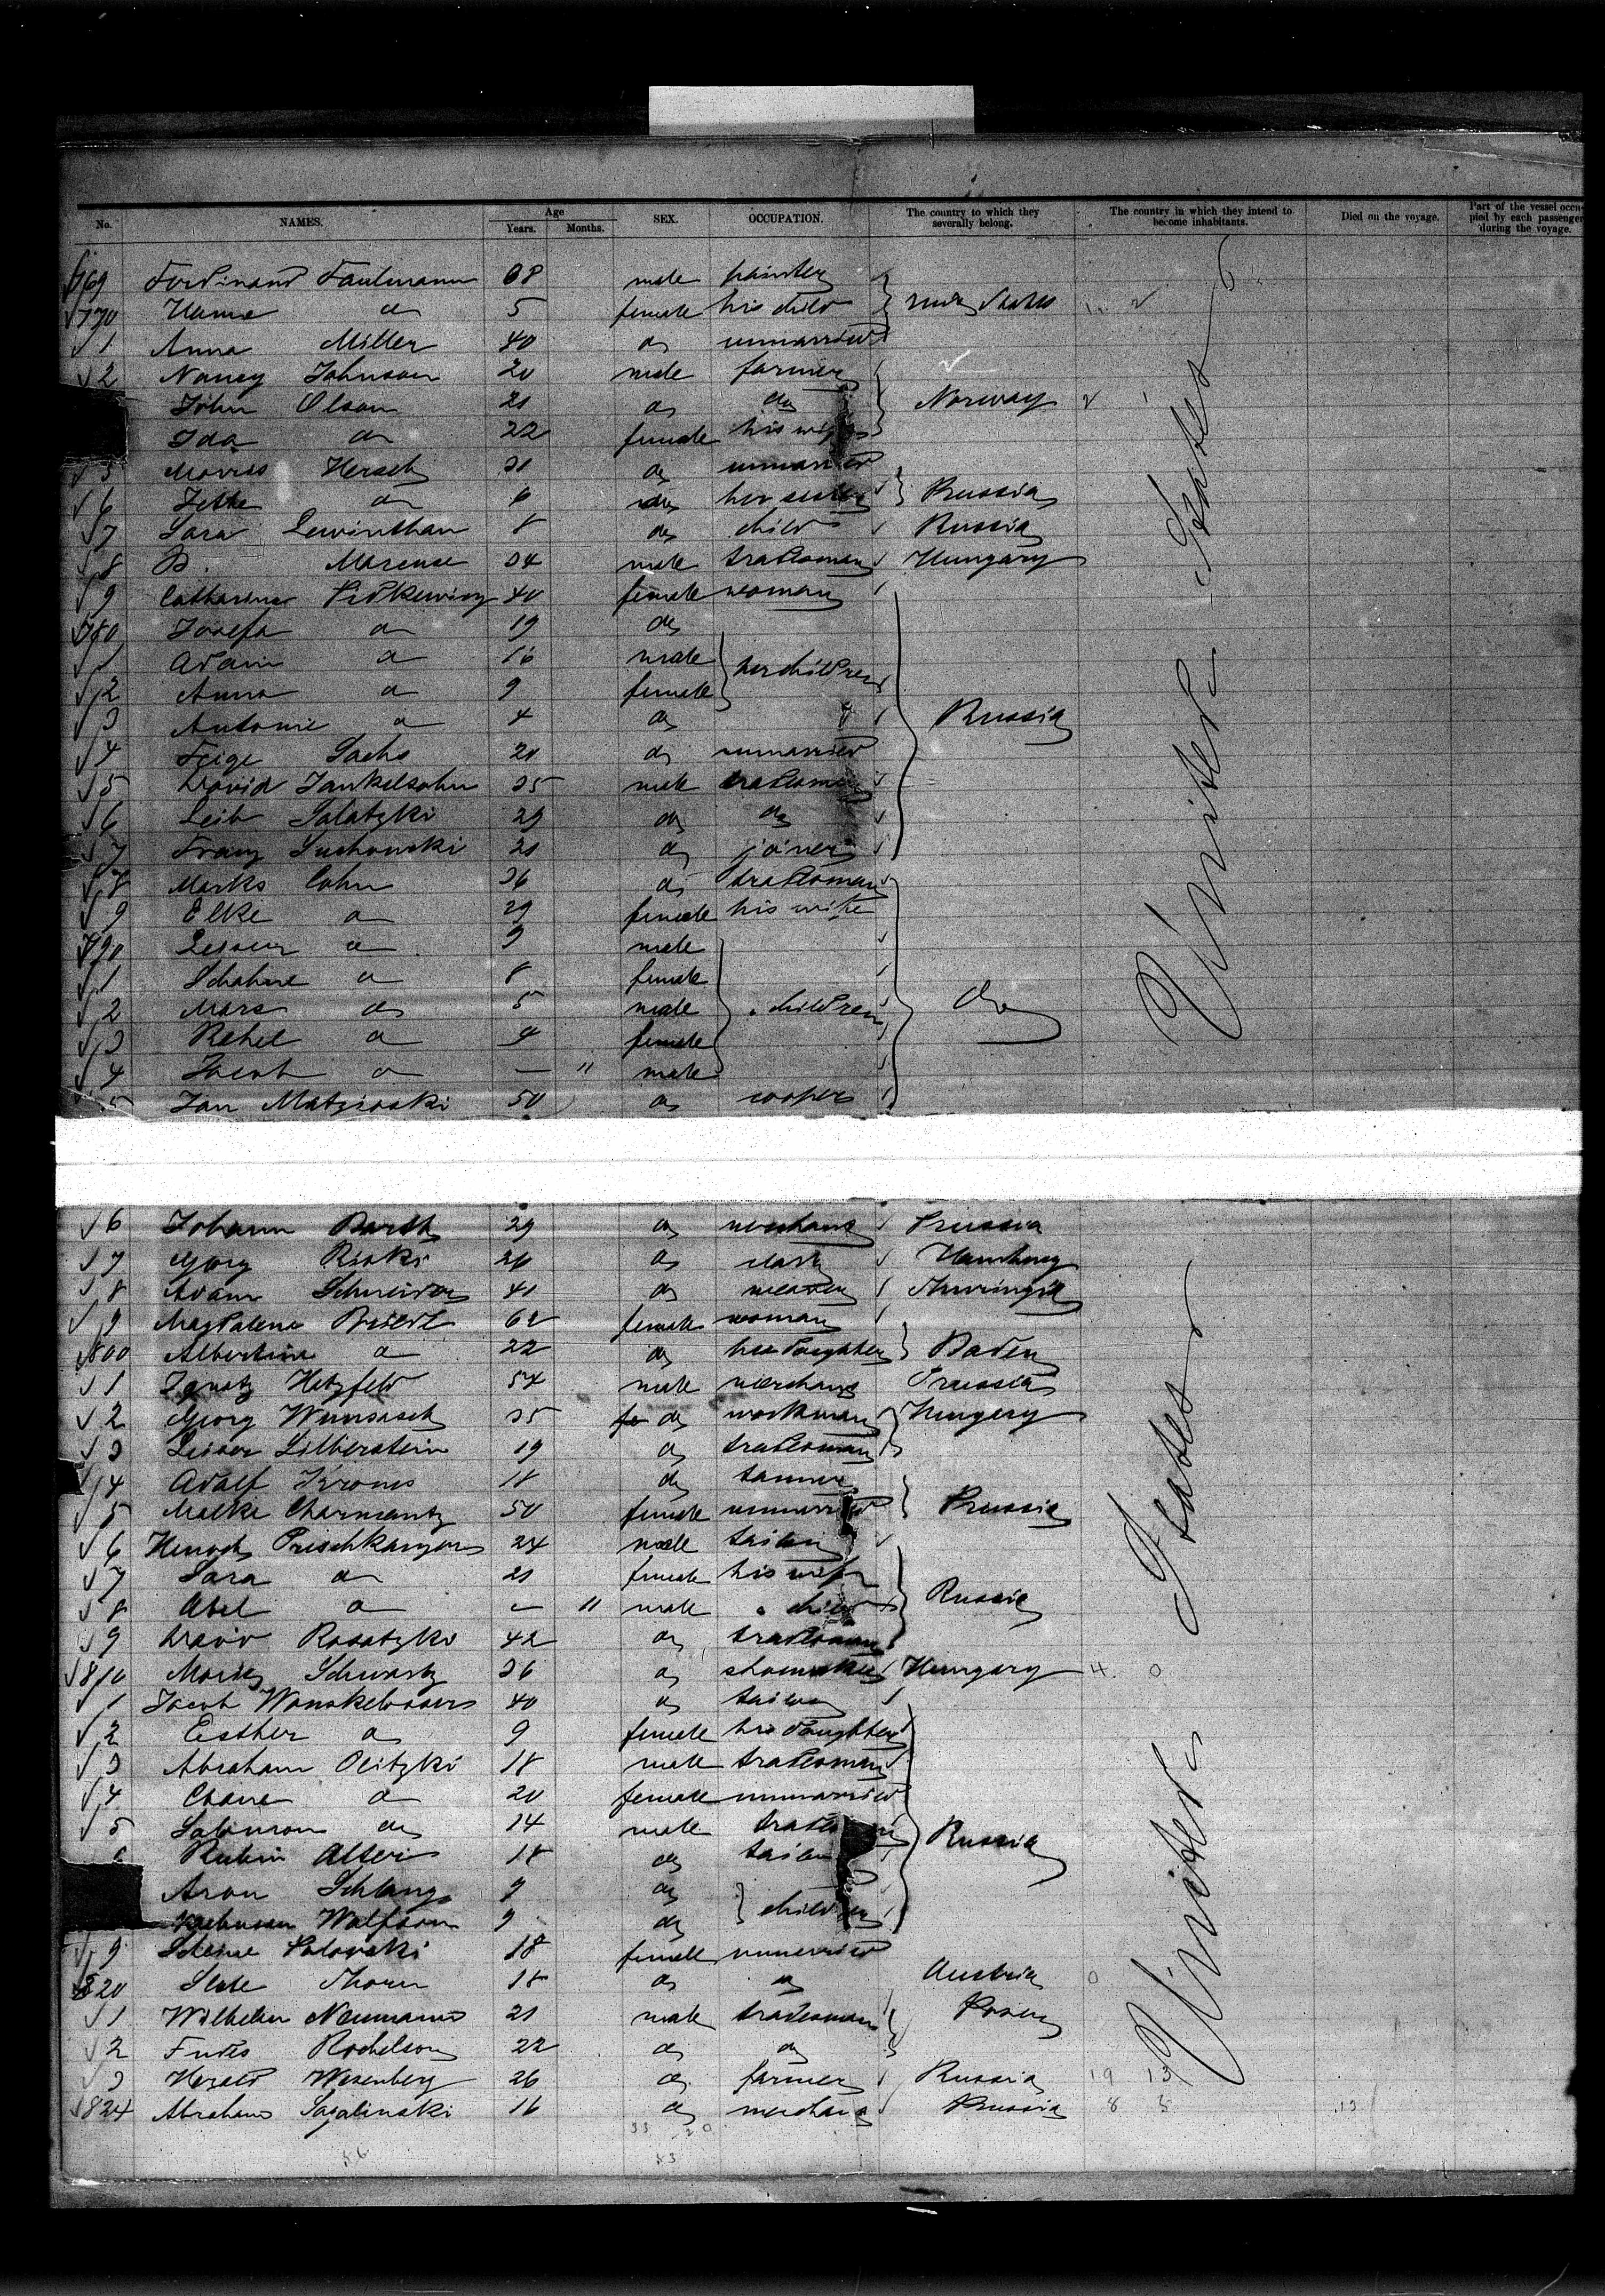 No. NAMES. Age Years. Months. SEX. OCCUPATION. The country to which they severally belong. The country in which they intend to become inhabitants. Died on the voyage. Part of the vessel occupied by each passenger during the voyage.
769 Ferdinand Faulmann 38 male painter
770 Hanna do 5 female his child United States
1 Anna Miller 40 do unmarried
2 Nancy Johnson 20 male farmer
John Olson 21 do do Norway
Ida do 22 female his wife
5 Hersch 21 do unmarried
6 Jette do 6 do her sister Russia
7 Sara Lewinthan 8 do child Russia
8 Marcuse 34 male tradesman Hungary
9 Catharina 40 female woman
780 Josefa do 19 do
1 Adam do 16 male her children
2 Anna do 9 female
3 Antonie do 4 do Russia
4 Feige Sachs 20 do unmarried
5 David Jankelsohn 35 male tradesman
6 Leib Salatzki 29 do do
7 Franz Suchowski 21 do joiner
8 Marks Cohn 36 do tradesman
9 Elke do 29 female his wife
790 do 9 male
1 do 8 female
2 Marx do 5 male " children do
3 Rahel do 4 female
4 Jacob do — 11 male
5 Jan 50 do cooper
6 Johann Barth 29 do merchant Prussia
7 Georg 26 do clerk Hamburg
8 Adam Schneider 41 do weaver Thuringia
9 Magdalena 62 female woman
800 Albertine do 22 do her daughter Baden
1 Ignatz Hatzfeld 54 male merchant Prussia
2 Georg 35 do workman Hungary
3 Leiser Silberstein 19 do tradesman
4 Adolf Krones 18 do tanner
5 Malke 50 female unmarried Prussia
6 Henoch 24 male tailor
7 Sara do 21 female his wife
8 Abel do — 11 male " child Russia
9 David Rosatzki 42 do tradesman
810 Moritz Schwartz 26 do shoemaker Hungary 4. 0
1 Jacob 40 do tailor
2 Esther do 9 female his daughter
3 Abraham Olitzki 18 male tradesman
4 do 20 female unmarried
5 Salomon do 14 male Russia
6 Rubin 18 do tailor
Aron Schlang 9 do children
Wolfson 9 do
9 18 female unmarried
820 Thorn 18 do do Austria 0
1 Wilhelm Neumann 21 male tradesman Posen
2 22 do do
3 Wesenberg 26 do farmer Russia 19 13
824 Abraham 16 do merchant Prussia 8 8
United States
United States